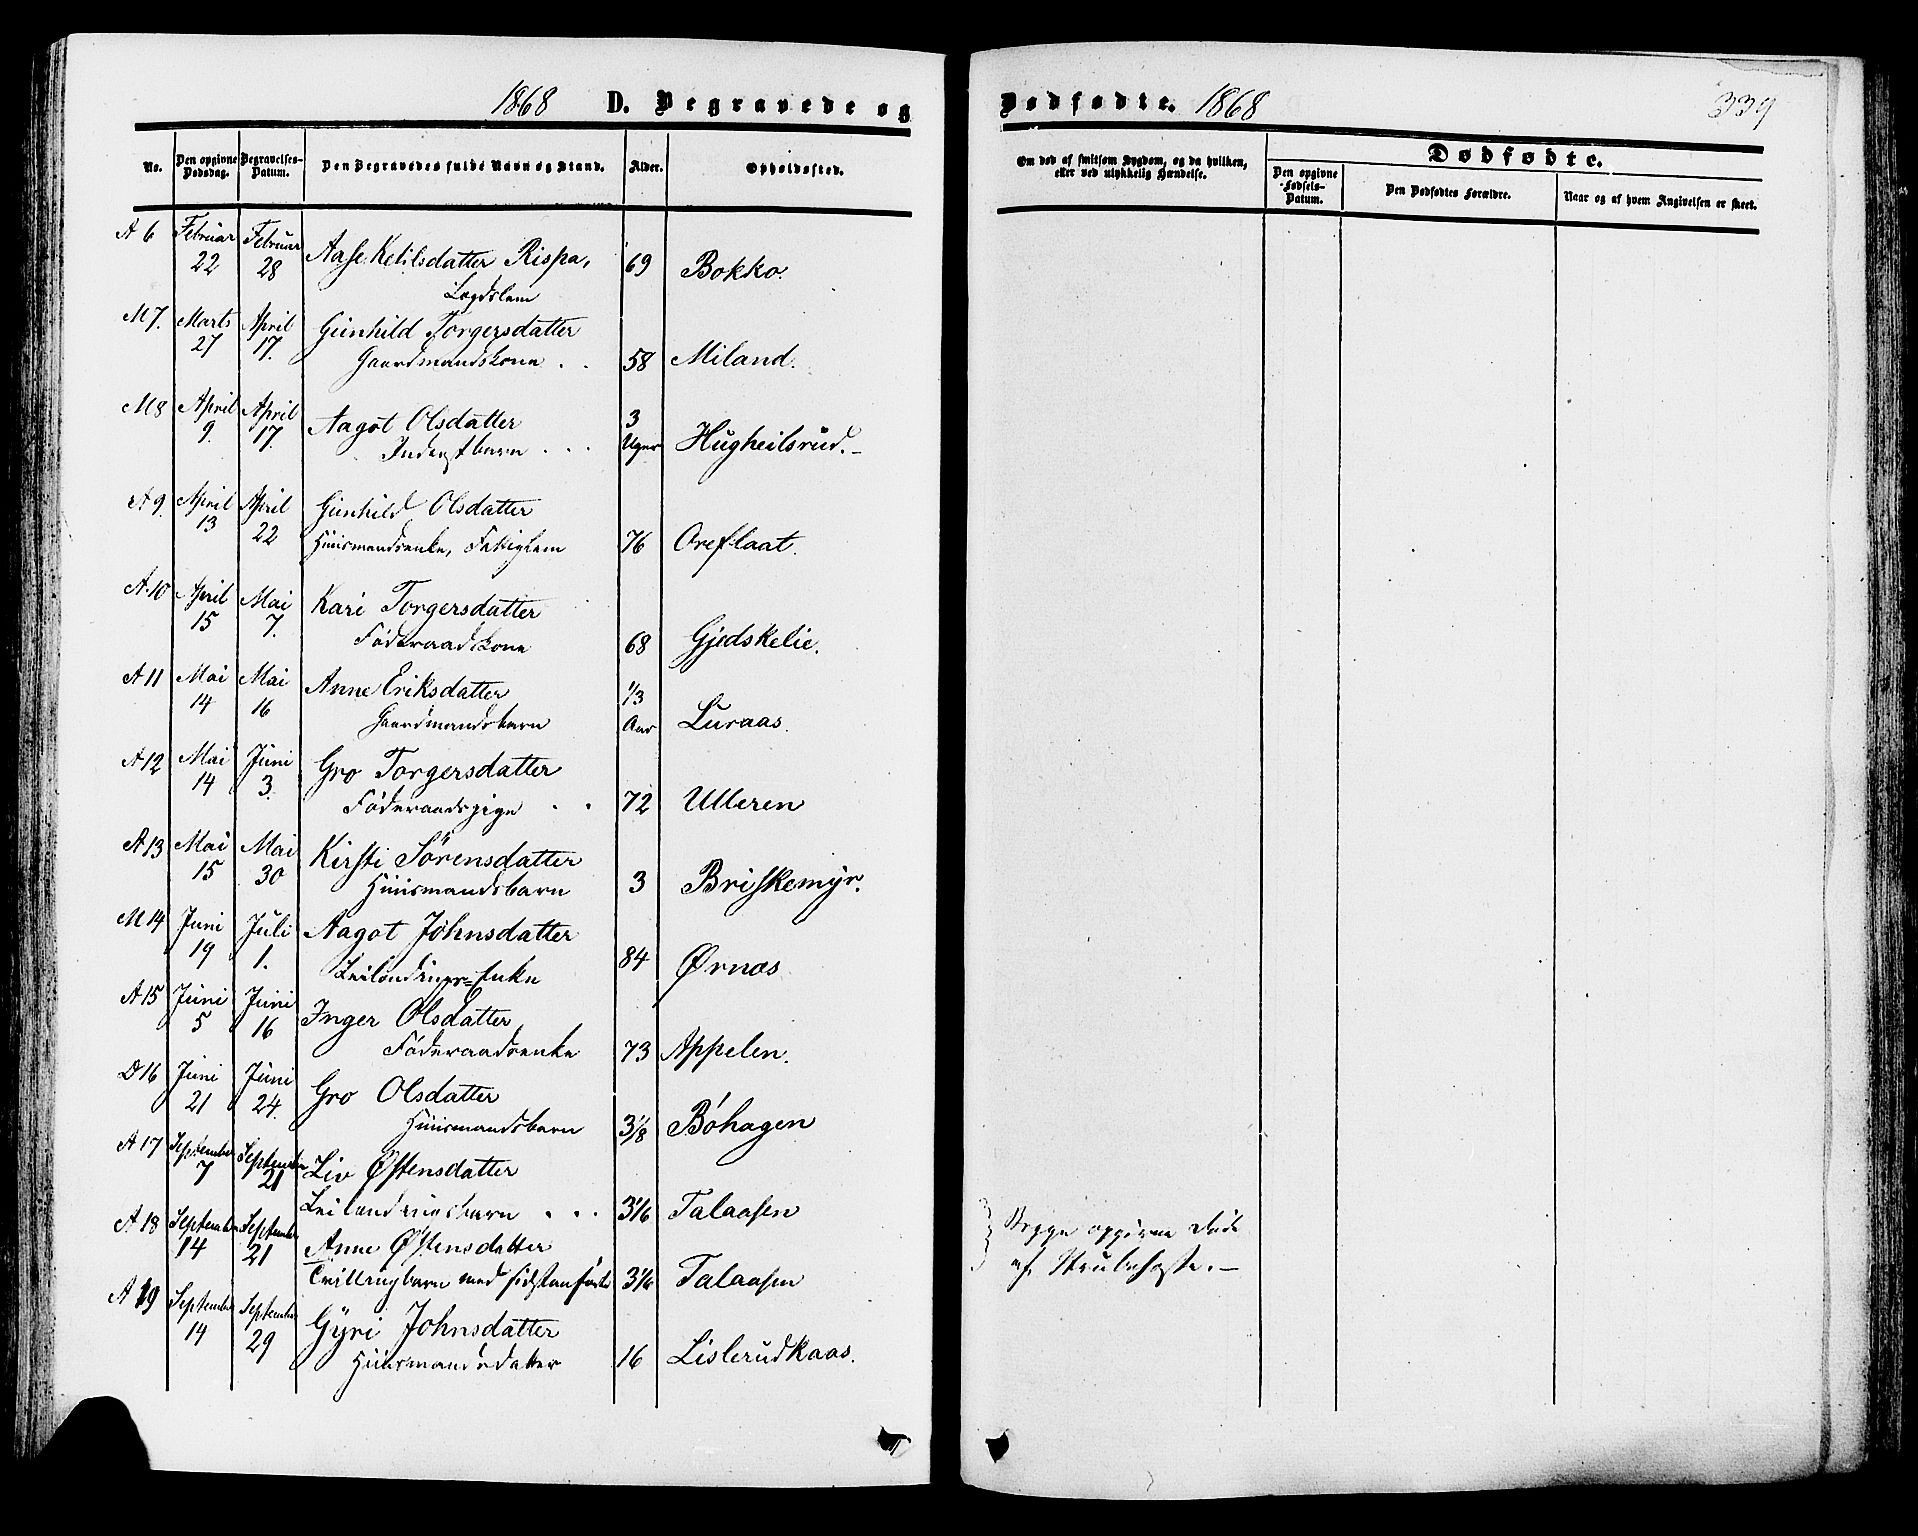 1868 D. Begravede og
No. Den opgivne Dødsdag. Begravelses-Datum. Den Begravedes fulde Navn og Stand. Alder. Opholdssted.
A 6 Februar 22 Februar 28 Aase Ketilsdatter Rispa, 69 Bokko.
Legdslem
M 7. Marts 27 April 17. Gunhild Torgersdatter
Gaardmandskone . . 58 Miland.
M 8 April 9. April 17. Aagot Olsdatter 3 Uger Hugheilsrud. -
Inderstbarn . . .
A 9. April 13 April 22 Gunhild Olsdatter
Huusmandsenke, Fattiglem 76 Oreflaat.
A. 10 April 15 Mai 7. Kari Torgersdatter
Føderaadskone 68 Gjedskelie.
A 11 Mai 14 Mai 16 Anne Eriksdatter 1/3
Gaardmandsbarn Aar Luraas.
A 12 Mai 14 Juni 3. Gro Torgersdatter
Føderaadspige . . 72 Ulleren
A 13 Mai 15 Mai 30 Kirsti Sörensdatter
Huusmandsbarn 3 Briskemyr.
M 14 Juni 19 Juli 1. Aagot Johnsdatter
Leilændings-Enke 84 Ørnæs
A 15 Juni 5 Juni 16 Inger Olsdatter
Føderaadsenke 73 Appelen.
D 16 Juni 21 Juni 24. Gro Olsdatter
Huusmandsbarn 3/8 Bøhagen
A 17 September 7 September 21 Liv Østensdatter
Leilændingsbarn . . . 3 1/6 Talaasen
A 18 September 14 September 21 Anne Østensdatter
Tvillingbarn med sidstanførte 3 1/6 Talaasen
A 19 September 14 September 29 Gyri Johnsdatter
Huusmandsdatter 16 Lislerudkaas.
Dødfødte. 1868 339
Om død af smitsom Sygdom, og da hvilken, eller ved ulykkelig Hændelse.
Dødfødte.
Den opgivne Fødsels-Datum. Den Dødfødtes Forældre. Naar og af hvem Angivelsen er skeet.
Begge opgivne døde
af Strubehoste. -